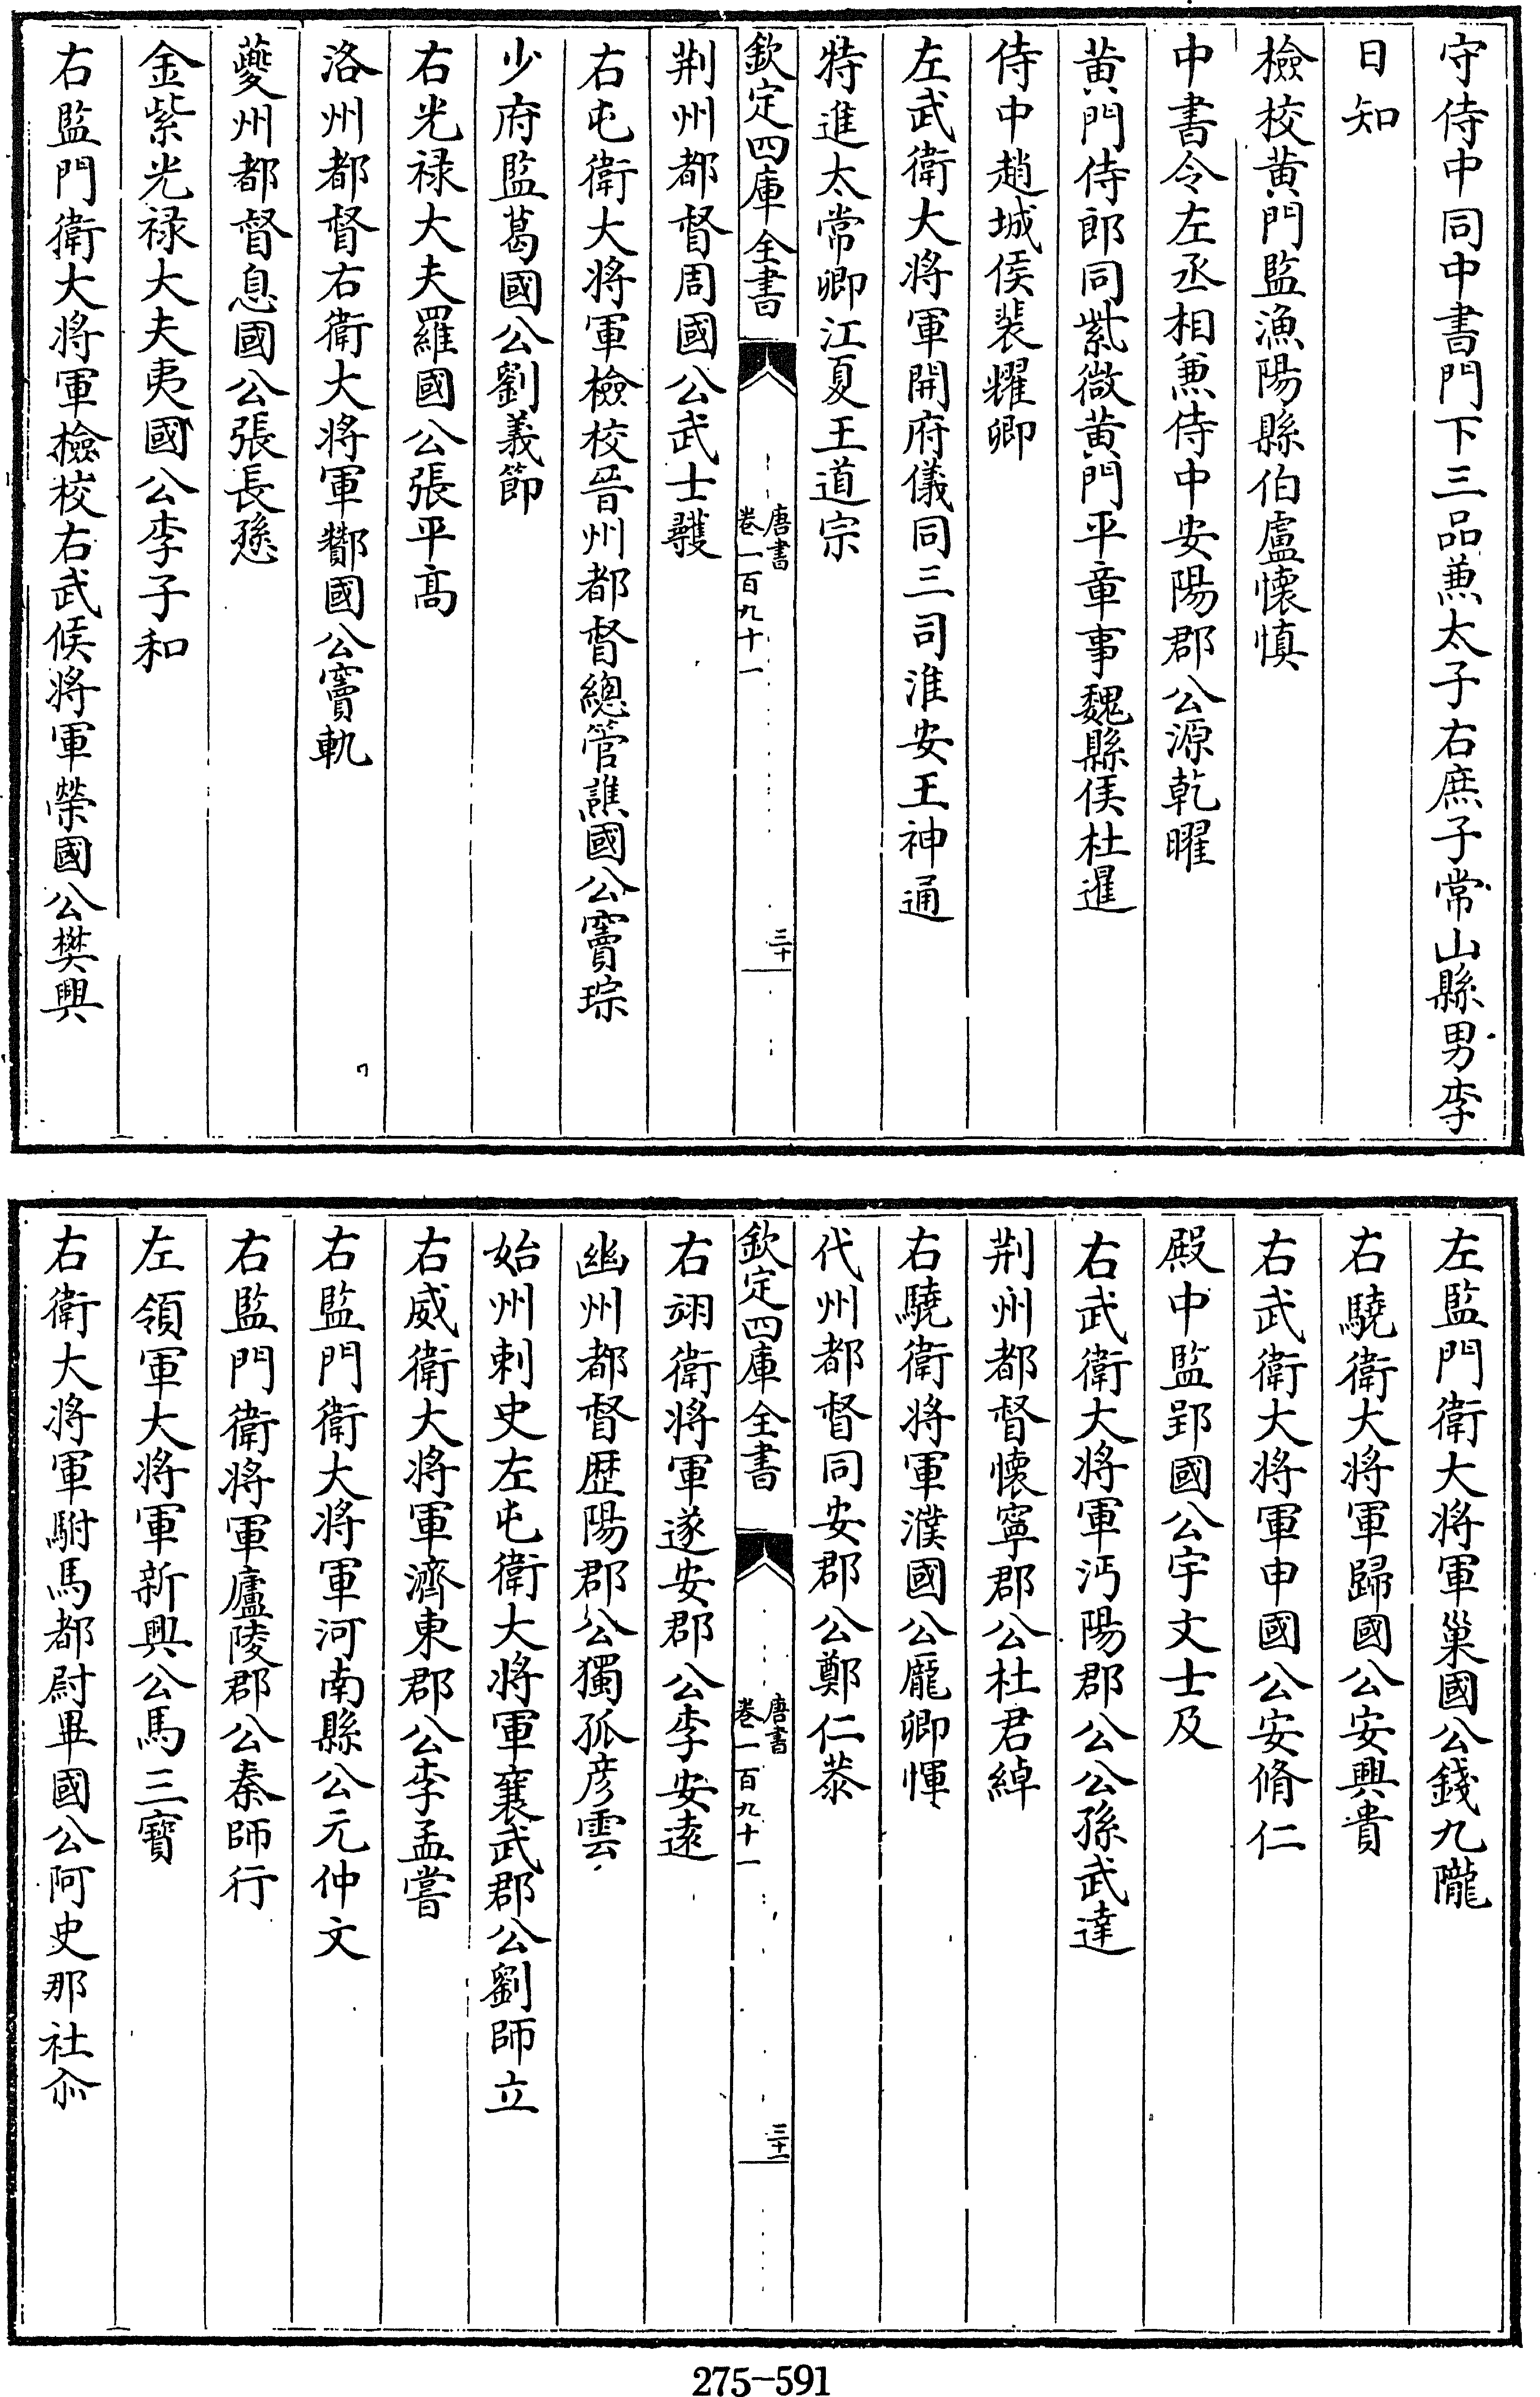 守侍中同中書門下三品兼太子右庶子常山縣男李
日知
檢校黄門監漁陽縣伯盧懷慎
中書令左丞相兼侍中安陽郡公源乾曜
黄門侍郎同紫微黄門平章事魏縣侯杜暹
侍中趙城侯裴耀卿
左武衛大將軍開府儀同三司淮安王神通
特進太常卿江夏王道宗
欽定四庫全書
唐書
卷一百九十一
三十
荆州都督周國公武士彠
右屯衛大將軍檢校晉州都督總管譙國公竇琮
少府監葛國公劉義節
右光祿大夫羅國公張平高
洛州都督右衛大將軍酇國公竇軌
夔州都督息國公張長愻
金紫光祿大夫夷國公李子和
右監門衛大將軍檢校右武候將軍榮國公樊興
左監門衛大將軍巢國公錢九隴
右驍衛大將軍歸國公安興貴
右武衛大將軍申國公安脩仁
殿中監郢國公宇文士及
右武衛大將軍沔陽郡公公孫武達
荆州都督懷寧郡公杜君綽
右驍衛將軍濮國公龐卿惲
代州都督同安郡公鄭仁恭
欽定四庫全書
唐書
卷一百九十一
三十一
右翊衛將軍遂安郡公李安遠
幽州都督歴陽郡公獨孤彦雲
始州刺史左屯衛大將軍襄武郡公劉師立
右威衛大將軍濟東郡公李孟嘗
右監門衛大將軍河南縣公元仲文
右監門衛將軍廬陵郡公秦師行
左領軍大將軍新興公馬三寶
右衛大將軍駙馬都尉畢國公阿史那社尒
275-591